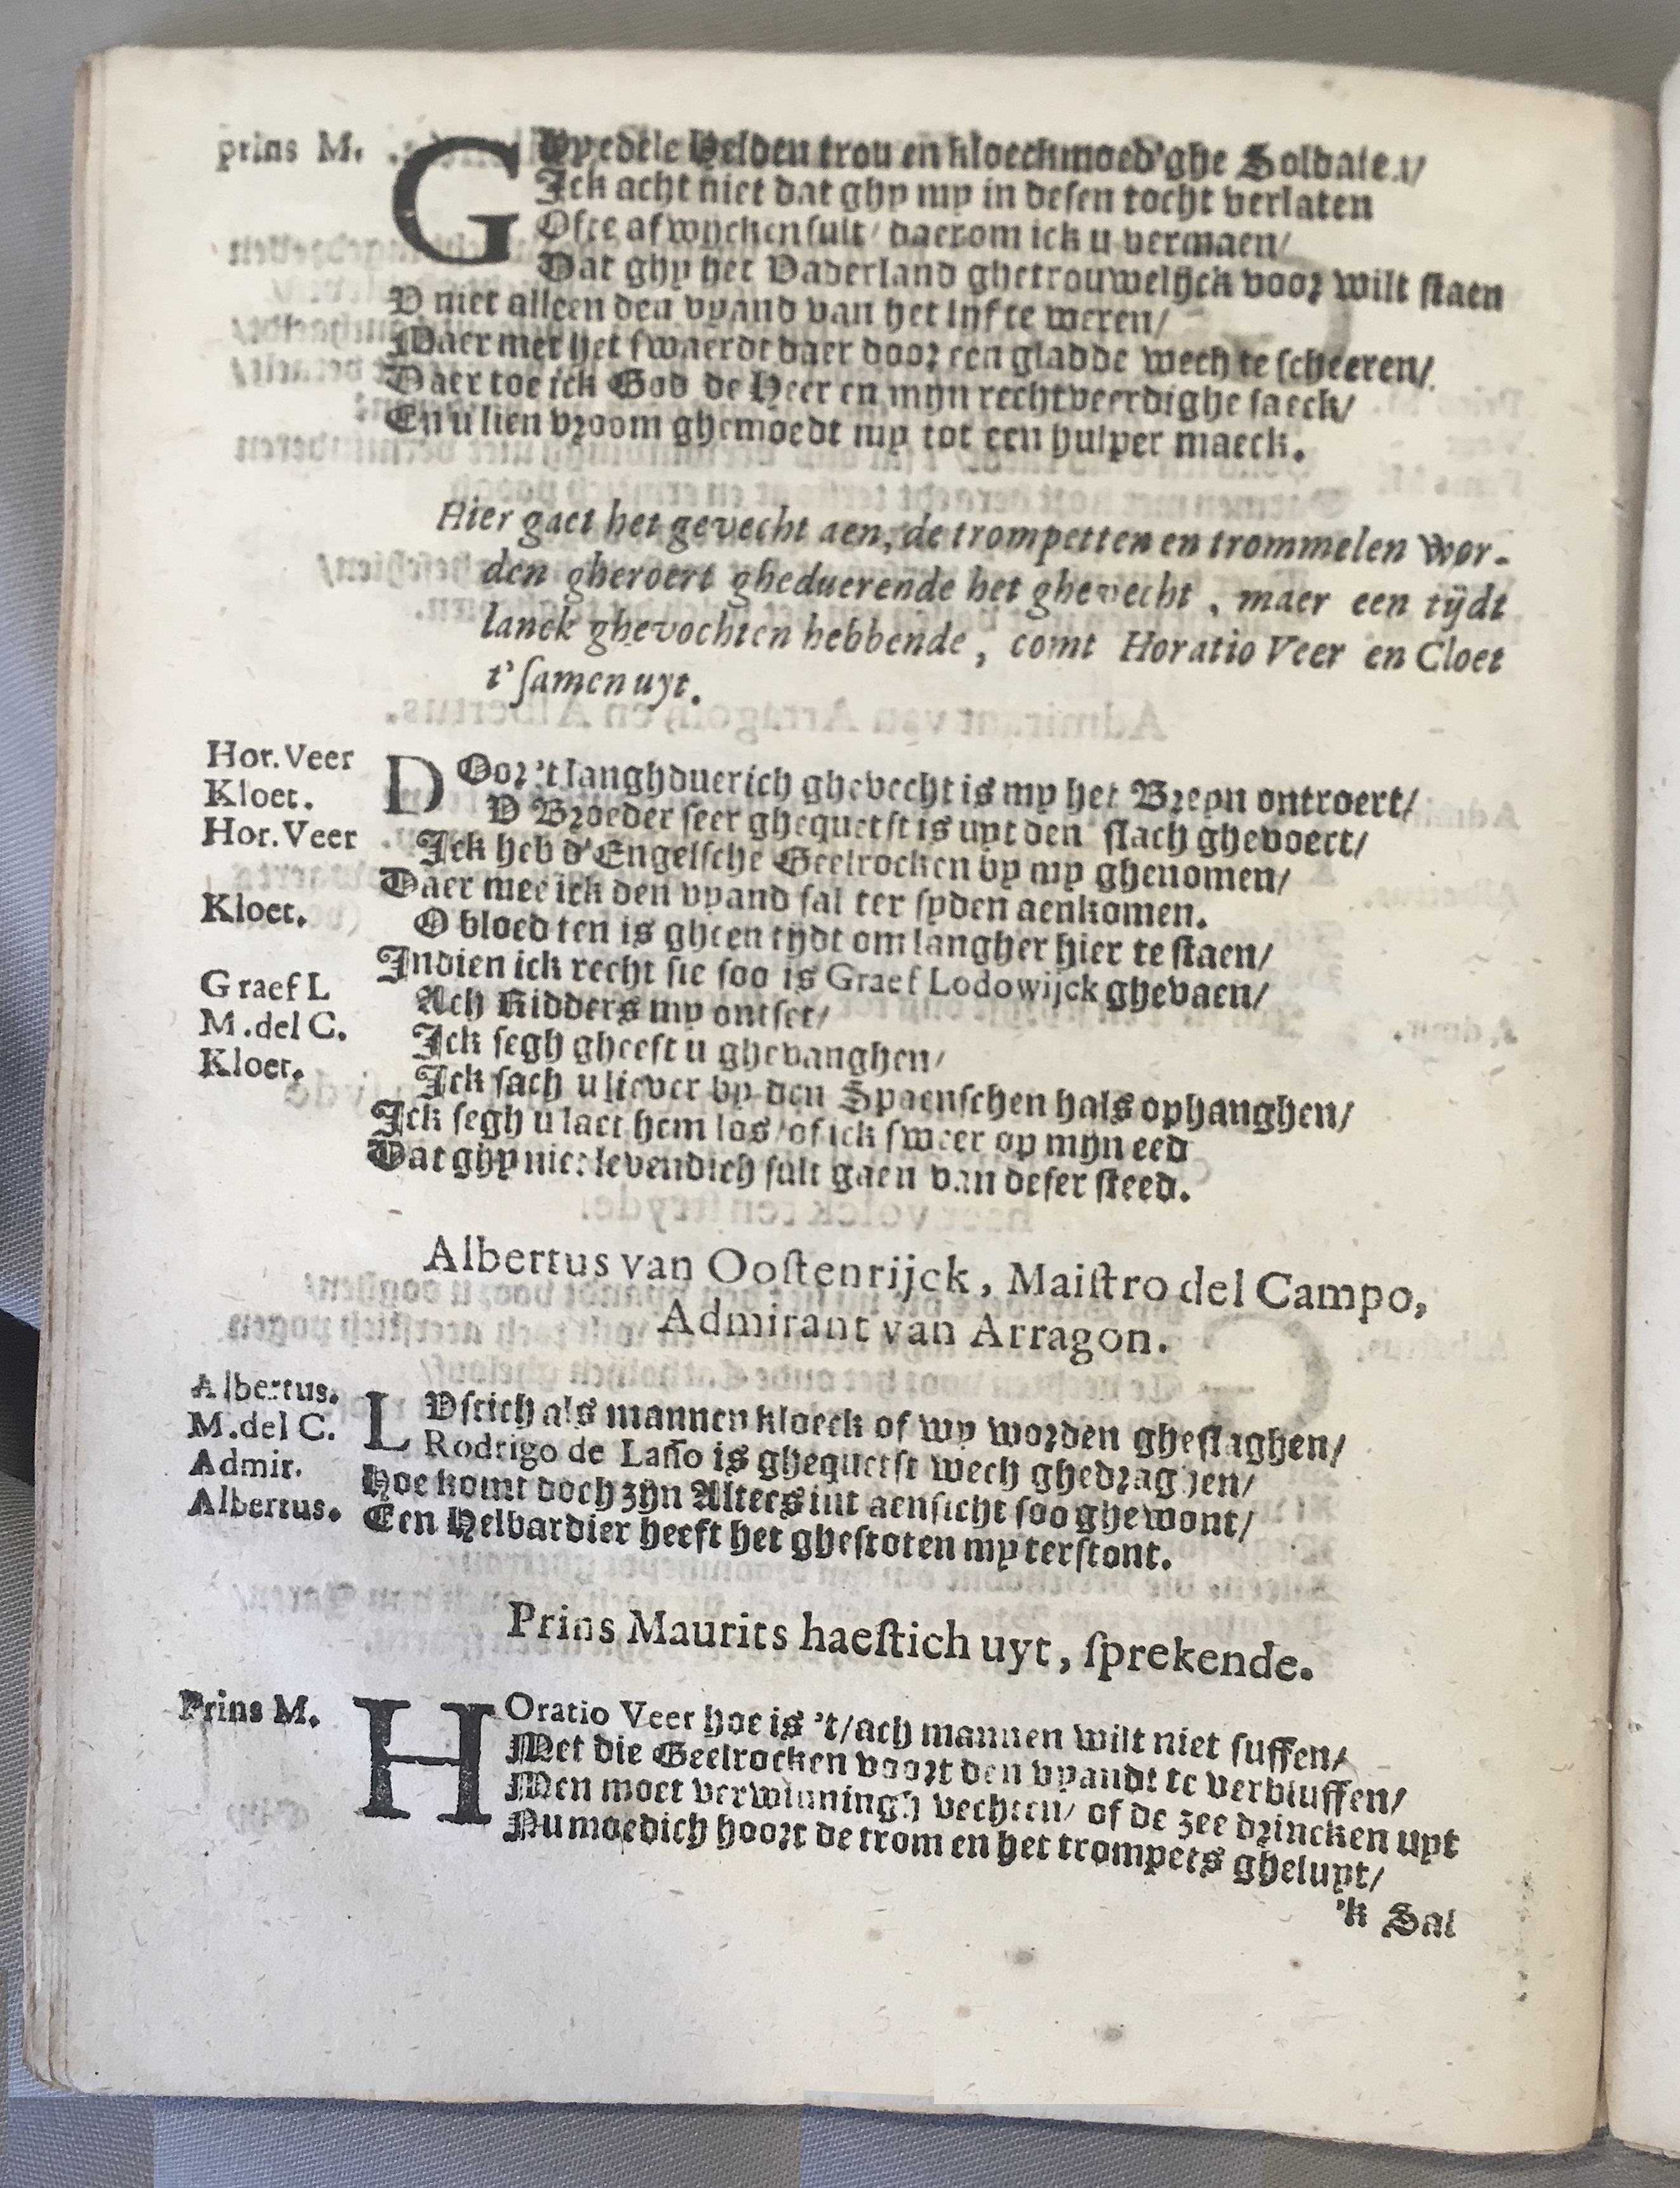 prins M. GHy edele Helden trou en kloeckmoed'ghe Soldaten/
Ick acht niet dat ghy my in desen tocht verlaten
Ofte afwycken sult/ daerom ick u vermaen/
Dat ghy het Vaderland ghetrouwelijck voor wilt staen
V niet alleen den vyand van het lyf te weren/
Maer met het swaerdt daer door een gladde wech te scheeren/
Daer toe ick God de Heer en mijn rechtveerdighe saeck/
En u lien vroom ghemoedt my tot een hulper maeck.
Hier gaet het gevecht aen, de trompetten en trommelen wor-
den gheroert gheduerende het ghevecht, maer een tijdt
lanck ghevochten hebbende, comt Horatio Veer en Cloet
t'samen uyt.
Hor. Veer DOor 't langhduerich ghevecht is my het Breyn ontroert/
Kloet. V Broeder seer ghequetst is uyt den slach ghevoert/
Hor. Veer Ick heb d'Engelsche Geelrocken by my ghenomen/
Daer mee ick den vyand sal ter syden aenkomen.
Kloet. O bloed ten is gheen tijdt om langher hier te staen/
Indien ick recht sie soo is Graef Lodowijck ghevaen/
Graef L Ach Ridders my ontset/
M. del C. Ick segh gheeft u ghevanghen/
Kloet. Ick sach u liever by den Spaenschen hals ophanghen/
Ick segh u laet hem los/ of ick sweer op mijn eed
Dat ghy niet levendich sult gaen van deser steed.
Albertus van Oostenrijck, Maistro del Campo,
Admirant van Arragon.
Albertus. LVstich als mannen kloeck of wy worden gheslaghen/
M. del C. Rodrigo de Lasso is ghequetst wech ghedraghen/
Admir. Hoe komt doch zijn Altees int aensicht soo ghewont/
Albertus. Een Helbardier heeft het ghestoten my terstont.
Prins Maurits haestich uyt, sprekende.
Prins M. HOratio Veer hoe is 't/ ach mannen wilt niet suffen/
Met die Geelrocken voort den vyandt te verbluffen/
Men moet verwinningh vechten/ of de zee drincken uyt
Nu moedich hoort de trom en het trompets gheluyt/
'k Sal